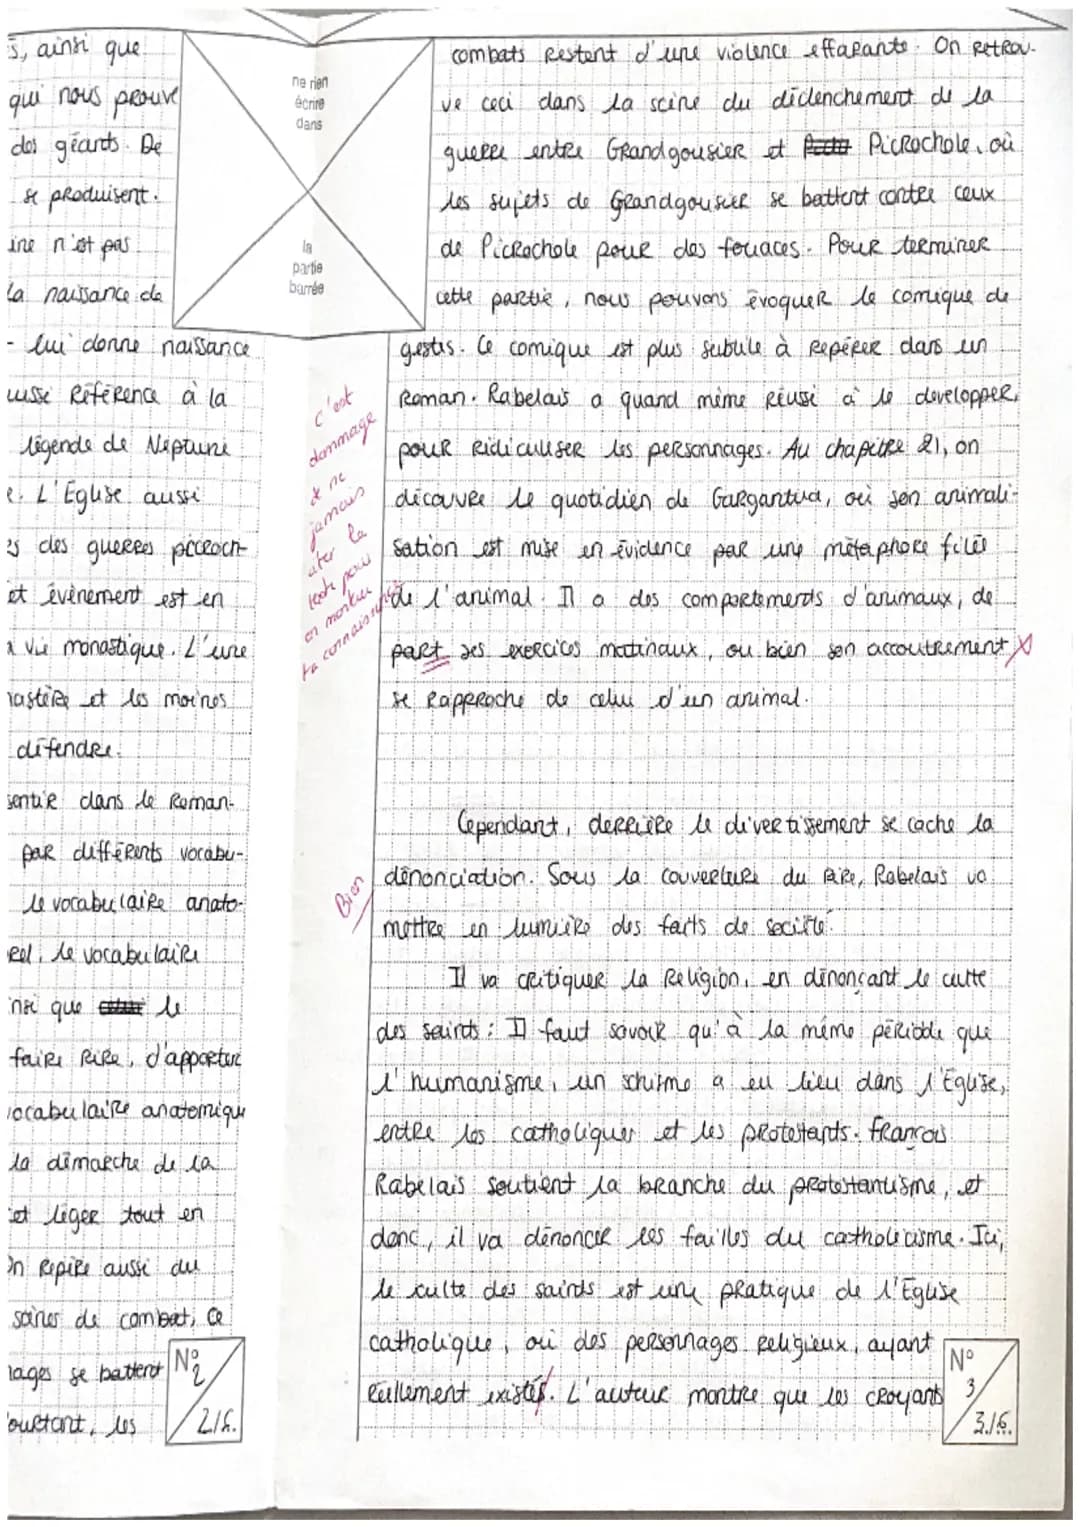 s, ainsi que
qui nous prouve
des géants. De
se produisent.
ine n'est pas
la naissance de
- lui donne naissance
aussi Référence à la
légende de Neptune
e. L'Eglise aussi
es des guerres picroch-
et évènement est en
a vie monastique. L'une
nastère et les moines
défendre.
sentir dans le Roman.
par différents vocabu-
le vocabulaire anato-
rel, le vocabulaire
insi que le
faire Rire, d'apporter
vocabulaire anatomique
la démarche de la
et léger tout en
On Repère aussi du
scènes de combat, ce
nages se battent
ourtant, les
N° 2
2/6.
ne rien
écrire
dans
la
partie
barrée
combats Restent d'une violence effarante. On Retrou-
ve ceci dans la scène du déclenchement de la
guerre entre Grandgousier et Picrochole, où
les sujets de Grandgousier se battent contre ceux
de Picrochole pour des fouaces. Pour terminer
cette partie, nous pouvons évoquer le comique de
gestes. Ce comique est plus subtile à Repérer dans un
Roman. Rabelais a quand même Réussi à le developper,
pour Ridiculiser les personnages. Au chapitre 21, on
découvre le quotidien de Gargantua, où son animali-
sation est mise en évidence par une métaphore filée
de l'animal. Il a des comportements d'animaux, de
part ses exercices matinaux, ou bien son accoutrement X
se Rapproche de celui d'un animal.
c'est
dommage
de ne
jamais
citer le
texte pour
en montrer
ta connaissance
Cependant, derrière le divertissement se cache la
dénonciation. Sous la couverture du Rire, Rabelais va
mettre en lumière des faits de société.
Bien
Il va critiquer la Religion, en dénonçant le culte
des saints : Il faut savoir qu'à la même période que
l'humanisme, un schisme a eu lieu dans l'Eglise,
entre les catholiques et les protestants. François
Rabelais soutient la branche du protestantisme, et
donc, il va dénoncer les failles du catholicisme. Ici,
le culte des saints est une pratique de l'Eglise
catholique, où des personnages Religieux, ayant
Réellement existés. L'auteur montre que les croyants
N° 3
3/6.